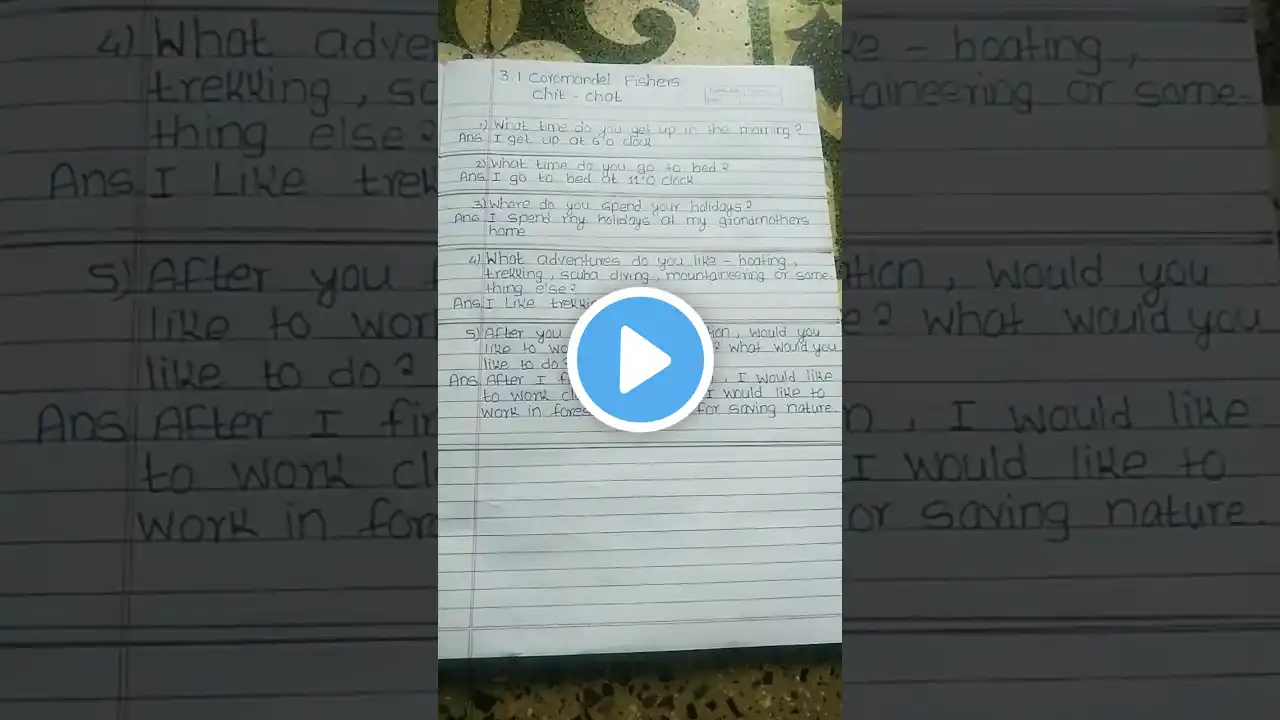 3.1 Coromandel Fishers
Chit - Chat
1) What time do you get up in the morning?
Ans I get up at 6'o clock
2) What time do you go to bed?
Ans I go to bed at 11'0 clock
3) Where do you spend your holidays?
Ans I spend my holidays at my grandmothers
home
4) What adventures do you like - boating,
trekking, scuba diving, mountaineering or some-
thing else?
Ans I Like trekking
5) After you , would you
like to ? What would you
like to do?
Ans After I , I would like
to work I would like to
work in for saving nature.